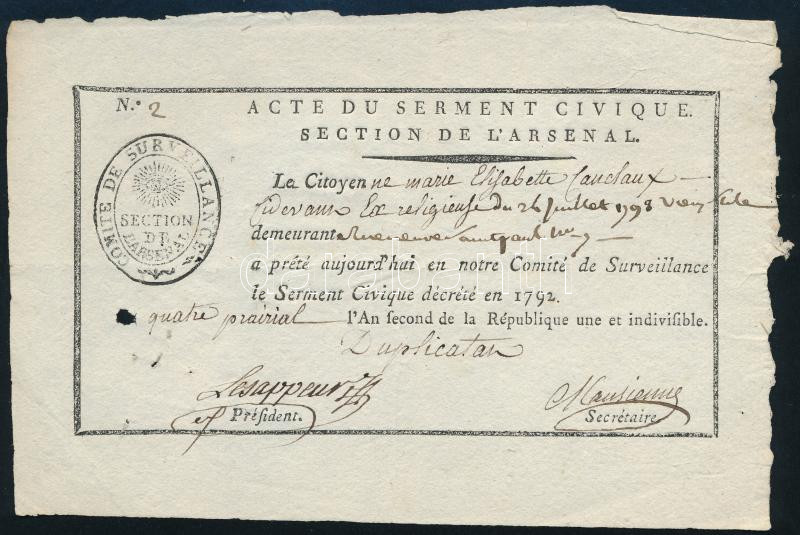 N.º 2
ACTE DU SERMENT CIVIQUE.
SECTION DE L'ARSENAL.
COMITÉ DE SURVEILLANCE
SECTION
DE
L'ARSENAL
Le Citoyen ne marie Elisabette
Ex religieuse du 26 Juillet
demeurant
a prété aujourd'hui en notre Comité de Surveillance
le Serment Civique décrété en 1792.
quatre prairial l'An second de la République une et indivisible.
Duplicata
Lesappeur
Président.
Secrétaire